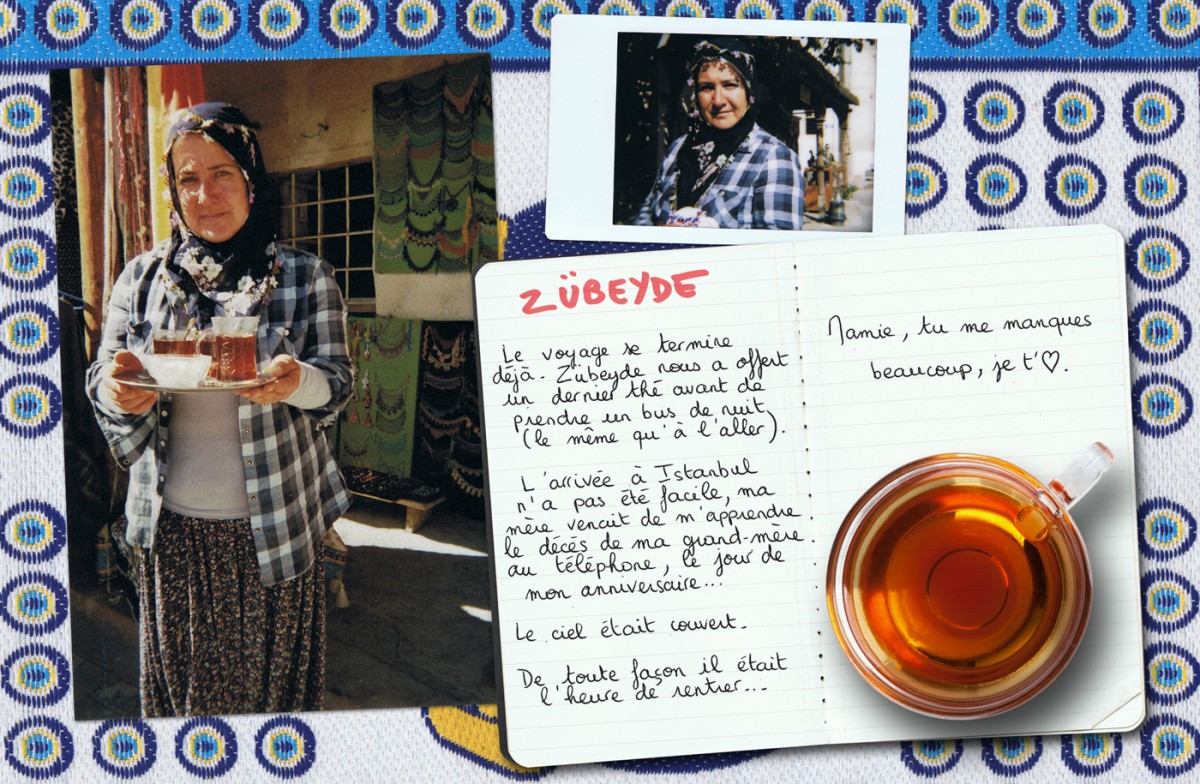 ZÜBEYDE
Le voyage se termine
déjà. Zübeyde nous a offert
un dernier thé avant de
prendre un bus de nuit
(le même qu'à l'aller).
L'arrivée à Istanbul
n'a pas été facile, ma
mère venait de m'apprendre
le décès de ma grand-mère
au téléphone, le jour de
mon anniversaire...
Le ciel était couvert.
De toute façon il était
l'heure de rentrer...
Mamie, tu me manques
beaucoup, je t'♡.